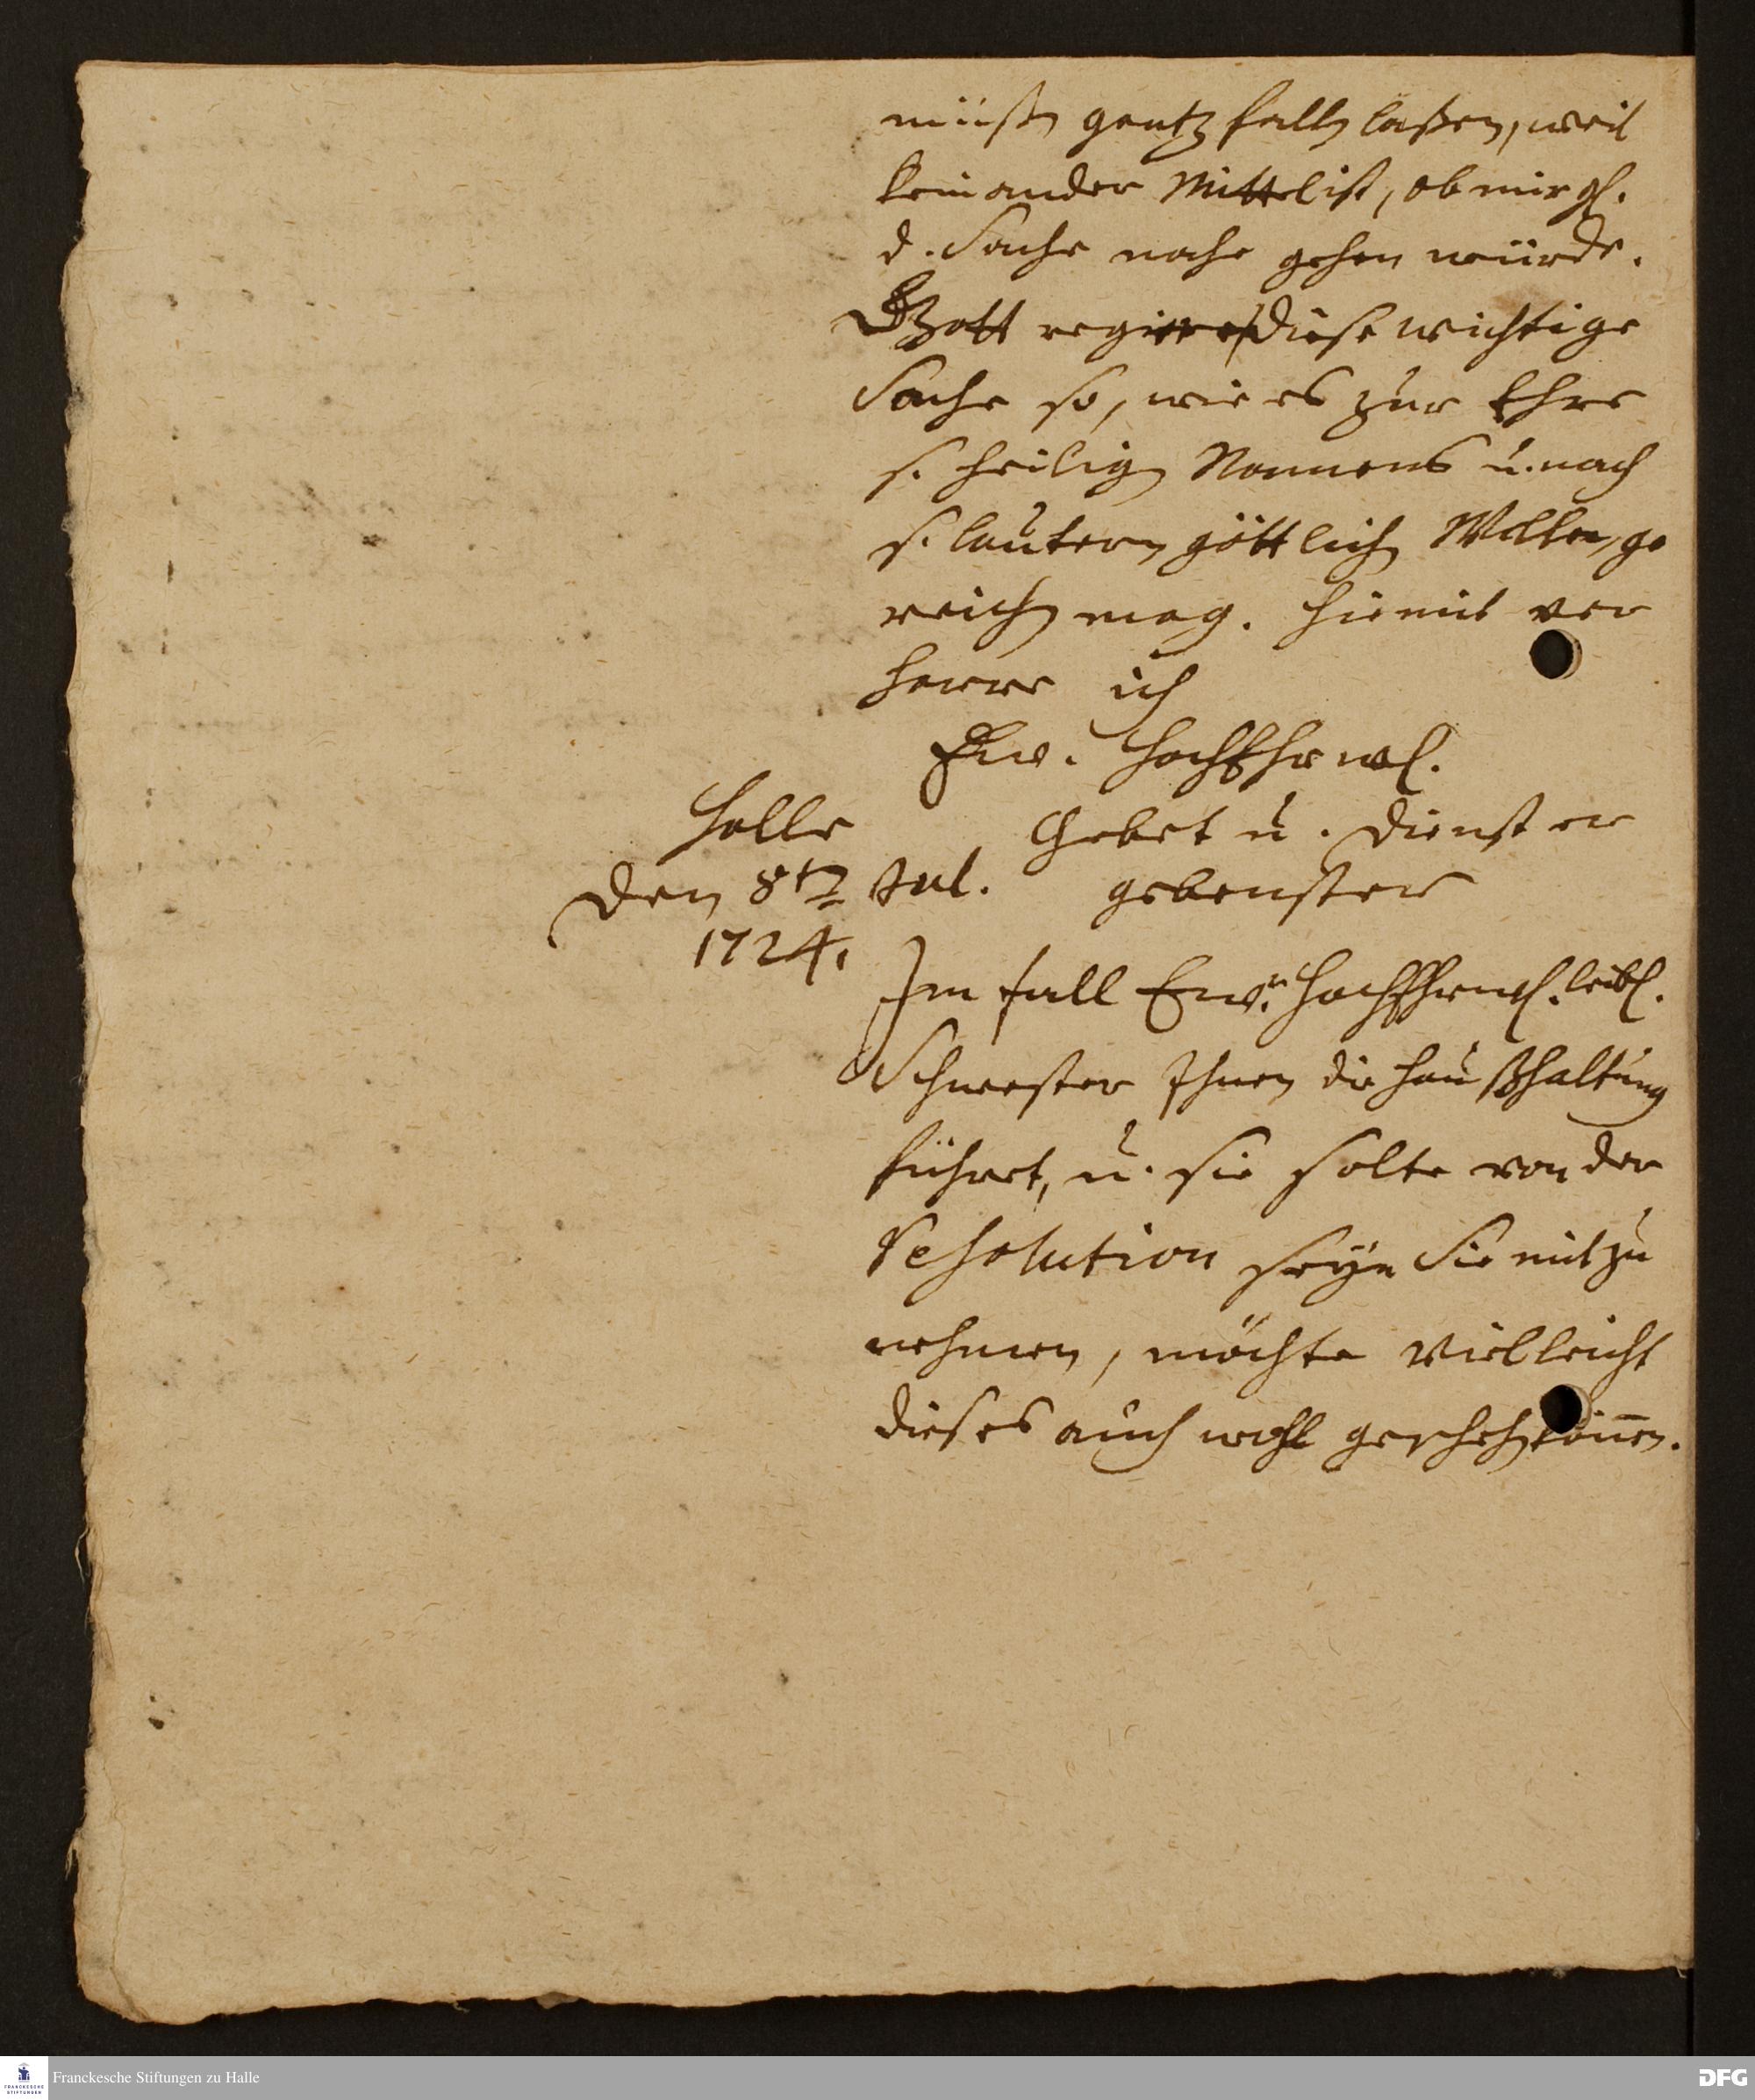 müßen gantz fallen laßen, weil
kein ander Mittel ist, ob mir gl.
d. Sache nahe gehen würde.
Gott regiere diese wichtige
Sache so, wie es zur Ehre
s. heiligen Nammens u. nach
s. lautern göttlichen Willen, ge
reichen mag. Hiemit ver
harre ich
Ew. HochEhrwl.
Halle
Gebet u. Dienst er
den 8ten Jul.
gebenster
1724.
Im fall Ewr. HochEhrwl. leibl.
Schwester Ihnen die Haußhaltung
führet, u. sie solte von der
Resolution seyn Sie mit zu
nehmen, möchte vielleicht
dieses auch wohl geschehen können.
Franckesche Stiftungen zu Halle
FRANCKESCHE
STIFTUNGEN
DFG